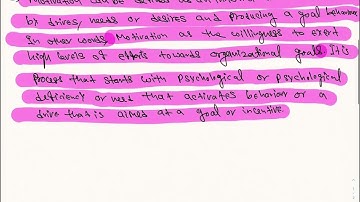 Motivation can be defined as an
by drives, needs or desires and producing a goal behaviour
In other words, Motivation as the willingness to exert
high levels of efforts towards organizational goals. It is
process that starts with Psychological or psychological
deficiency or need that activates behavior or a
drive that is aimed at a goal or incentive